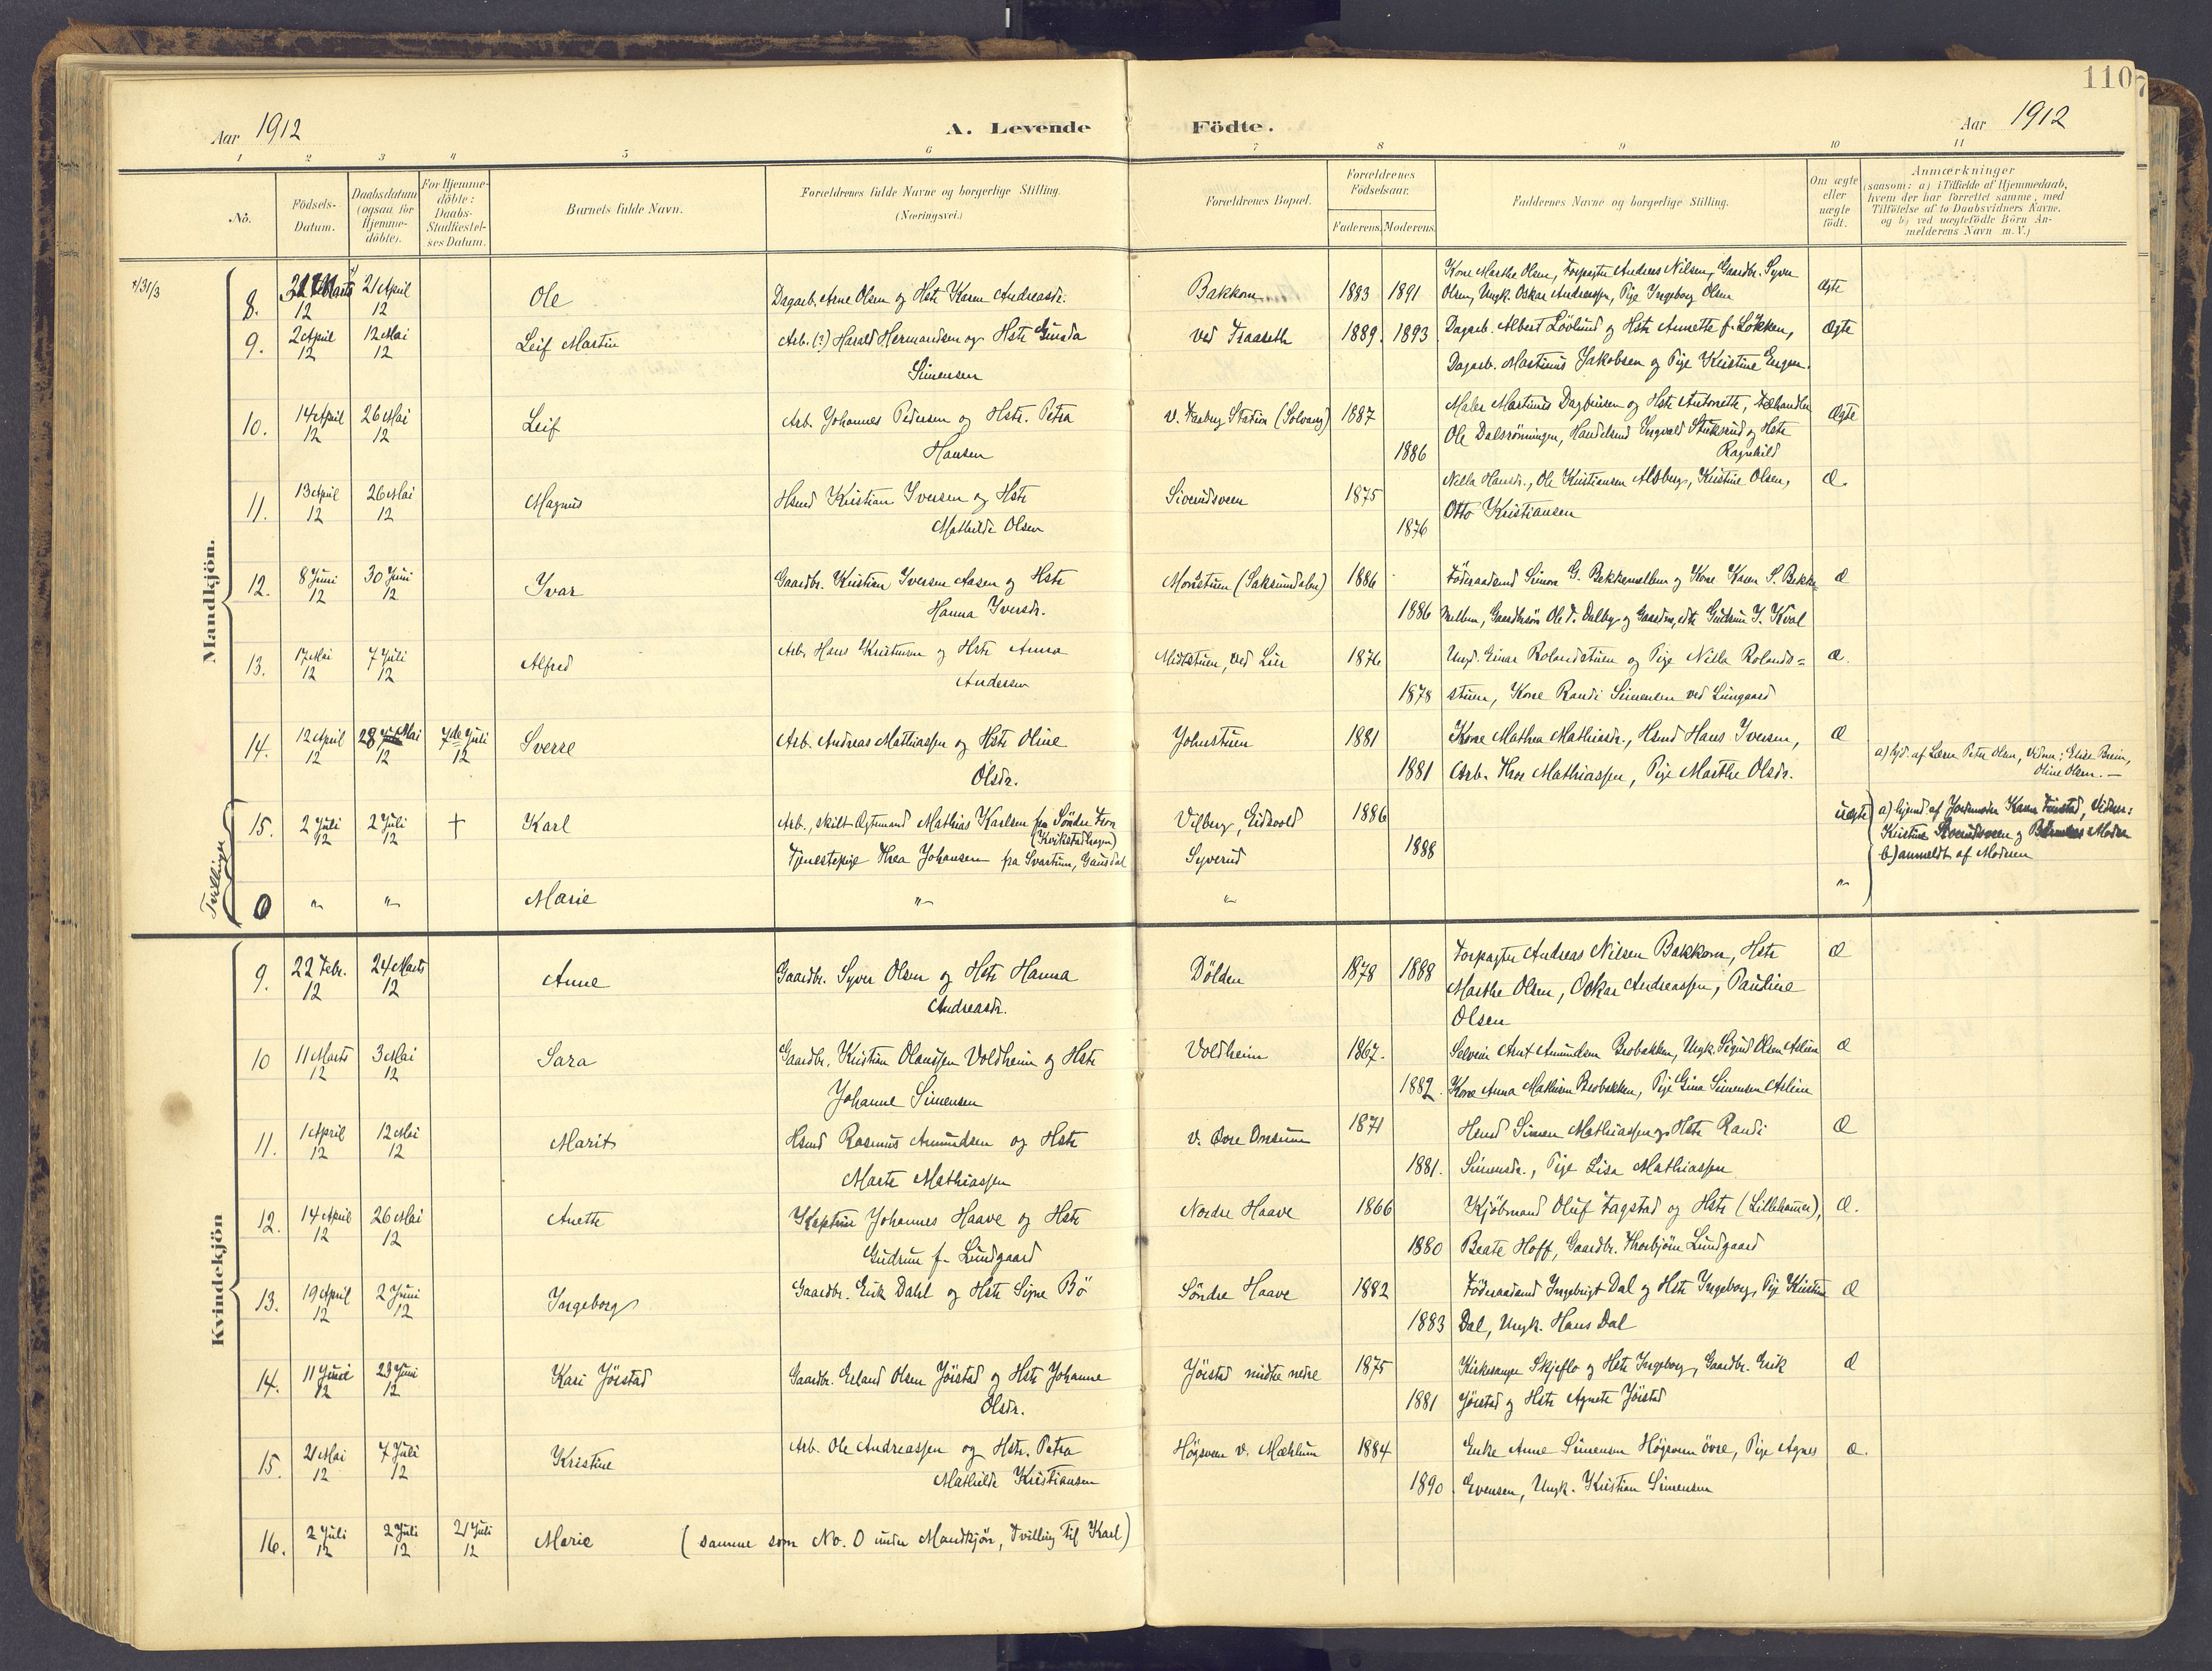 110
Aar 1912
A. Levende Födte.
Aar 1912
1 2 3 4 5 6 7 8 9 10 11
No.
Födsels-Datum.
Daabsdatum (ogsaa for Hjemmedöbte).
For Hjemmedöbte: Daabs-Stadfestelses Datum.
Barnets fulde Navn.
Forældrenes fulde Navne og borgerlige Stilling.
(Næringsvei.)
Forældrenes Bopæl.
Forældrenes Födselsaar.
Faderens. Moderens.
Faddernes Navne og borgerlige Stilling.
Om ægte eller uægte födt.
Anmærkninger
(saasom: a) i Tilfælde af Hjemmedaab,
hvem der har forrettet samme, med
Tilföielse af to Daabsvidners Navne,
og b) ved uægtefödte Börn An-
melderens Navn m.V.)
Mandkjön.
8. 12 21 April 12 Ole Dagarb. Arne Olsen og Hstr Karen Andreasdr. Bakkom 1883 1891 Kone Marthe Olsen, Forpagter Andreas Nilsen, Gaardbr. Syver
Olsen, Ungk. Oskar Andreassen, Pige Ingeborg Olsen Ægte
9. 2 April 12 12 Mai 12 Leif Martin Arb. (?) Harald Hermandsen og Hstr Gunda
Simensen ved Fraaseth 1889. 1893 Dagarb. Albert Lövlund og Hstr Annette f. Lökken,
Dagarb. Martinus Jakobsen og Pige Kristine Engen. Ægte
10. 14 April 12 26 Mai 12 Leif Arb. Johannes Pedersen og Hstr. Petra
Hansen v. Faaberg Station (Solvang) 1887 1886 Maler Martinus Dagfinsen og Hstr Antonette, Fælhandler
Ole Dalsröningen, Handelsmd Ingvald Stuksrud og Hstr
Ragnhild Ægte
11. 13 April 12 26 Mai 12 Magnus Hsmd Kristian Iversen og Hstr
Mathilde Olsen Siverudsveen 1875 1876 Nella Hansdr., Ole Kristiansen Alsberg, Kristine Olsen,
Otto Kristiansen Æ.
12. 8 Juni 12 30 Juni 12 Ivar Gaardbr. Kristian Iversen Aasen og Hstr
Hanna Iversdr. Moristuen (Saksumdalen) 1886 1886 Föderaadsmd Simon G. Bekkemellem og Kone Karen S. Bekke-
mellem, Gaardbrsön Ole T. Dalby og Gudrun I. Kval Æ
13. 17 Mai 12 7 Juli 12 Alfred Arb. Hans Kristiansen og Hstr Anna
Andersen Midtstuen, ved Lier 1876 1878 Ungk. Einar Rolandstuen og Pige Nilla Rolands=
stuen, Kone Randi Simensen ved Lungaard Æ.
14. 12 April 12 28 Mai 12 7de Juli 12 Sverre Arb. Andreas Mathiassen og Hstr Oline
Olsdr. Johnstuen 1881 1881 Kone Mathea Mathiasdr., Hsmd Hans Iversen,
Arb. Thor Mathiassen, Pige Marthe Olsdr. Æ a) Hjd. af Lærer Peter Olsen, Vidner: Elise Breien,
Oline Olsen. —
Tvillinger
15. 2 Juli 12 2 Juli 12 † Karl Arb., skilt Ægtemand Mathias Karlsen fra Söndre Fron
(Kvikstadhagen)
Tjenestepige Thea Johansen fra Svartum, Gausdal Vilberg, Eidsvold
Syverud 1886 1888 uægte a) hjemd af Jordmoder Karen Furstad, Vidner:
Kristine Siverudsveen og Moder
b) anmeldt af Moderen
0 " " Marie " " "
Kvindekjön
9. 22 Febr. 12 24 Marts 12 Anne Gaardbr. Syver Olsen og Hstr Hanna
Andreasdr. Dölden 1878 1888 Forpagter Andreas Nilsen Bakkom, Hstr
Marthe Olsen, Oskar Andreassen, Pauline
Olsen Æ
10 11 Marts 12 3 Mai 12 Sara Gaardbr. Kristian Olaussen Voldheim og Hstr
Johanne Simensen Voldheim 1867. 1882. Selveier Arnt Amundsen Brobakken, Ungk. Sigurd Olsen Aslien
Kone Anna Mathisen Brobakken, Pige Gina Simensen Aslien Æ
11. 1 April 12 12 Mai 12 Marit Hsmd Rasmus Amundsen og Hstr
Marte Mathiassen v. Övre Onsum 1871 1881. Hsmd Simen Mathiassen og Hstr Randi
Simensdr., Pige Lisa Mathiassen Æ
12. 14 April 12 26 Mai 12 Anette Kaptein Johannes Haave og Hstr
Gudrun f. Lundgaard Nordre Haave 1866 1880 Kjöbmand Oluf Fagstad og Hstr (Lillehamer),
Beate Hoff, Gaardbr. Thorbjörn Lundgaard Æ.
13. 19 April 12 2 Juni 12 Ingeborg Gaardbr. Erik Dahl og Hstr Signe Bö Söndre Haave 1882 1883 Föderaadsmd Ingebrigt Dal og Hstr Ingeborg, Pige Kristine
Dal, Ungk. Hans Dal Æ
14. 11 Juni 12 23 Juni 12 Kari Jörstad Gaardbr. Erland Olsen Jörstad og Hstr Johanne
Olsdr. Jörstad midtre nedre 1875 1881 Kirkesanger Skjeflo og Hstr Ingeborg, Gaardbr. Erik
Jörstad og Hstr Agnete Jörstad Æ
15. 21 Mai 12 7 Juli 12 Kristine Arb. Ole Andreassen og Hstr. Petra
Mathilde Kristiansen Högsveen v. Mæhlum 1884 1890 Enke Anne Simensen Högsveen övre, Pige Agnes
Evensen, Ungk. Kristian Simensen Æ.
16. 2 Juli 12 2 Juli 12 21 Juli 12 Marie (samme som No. 0 under Mandkjön, Tvilling til Karl)